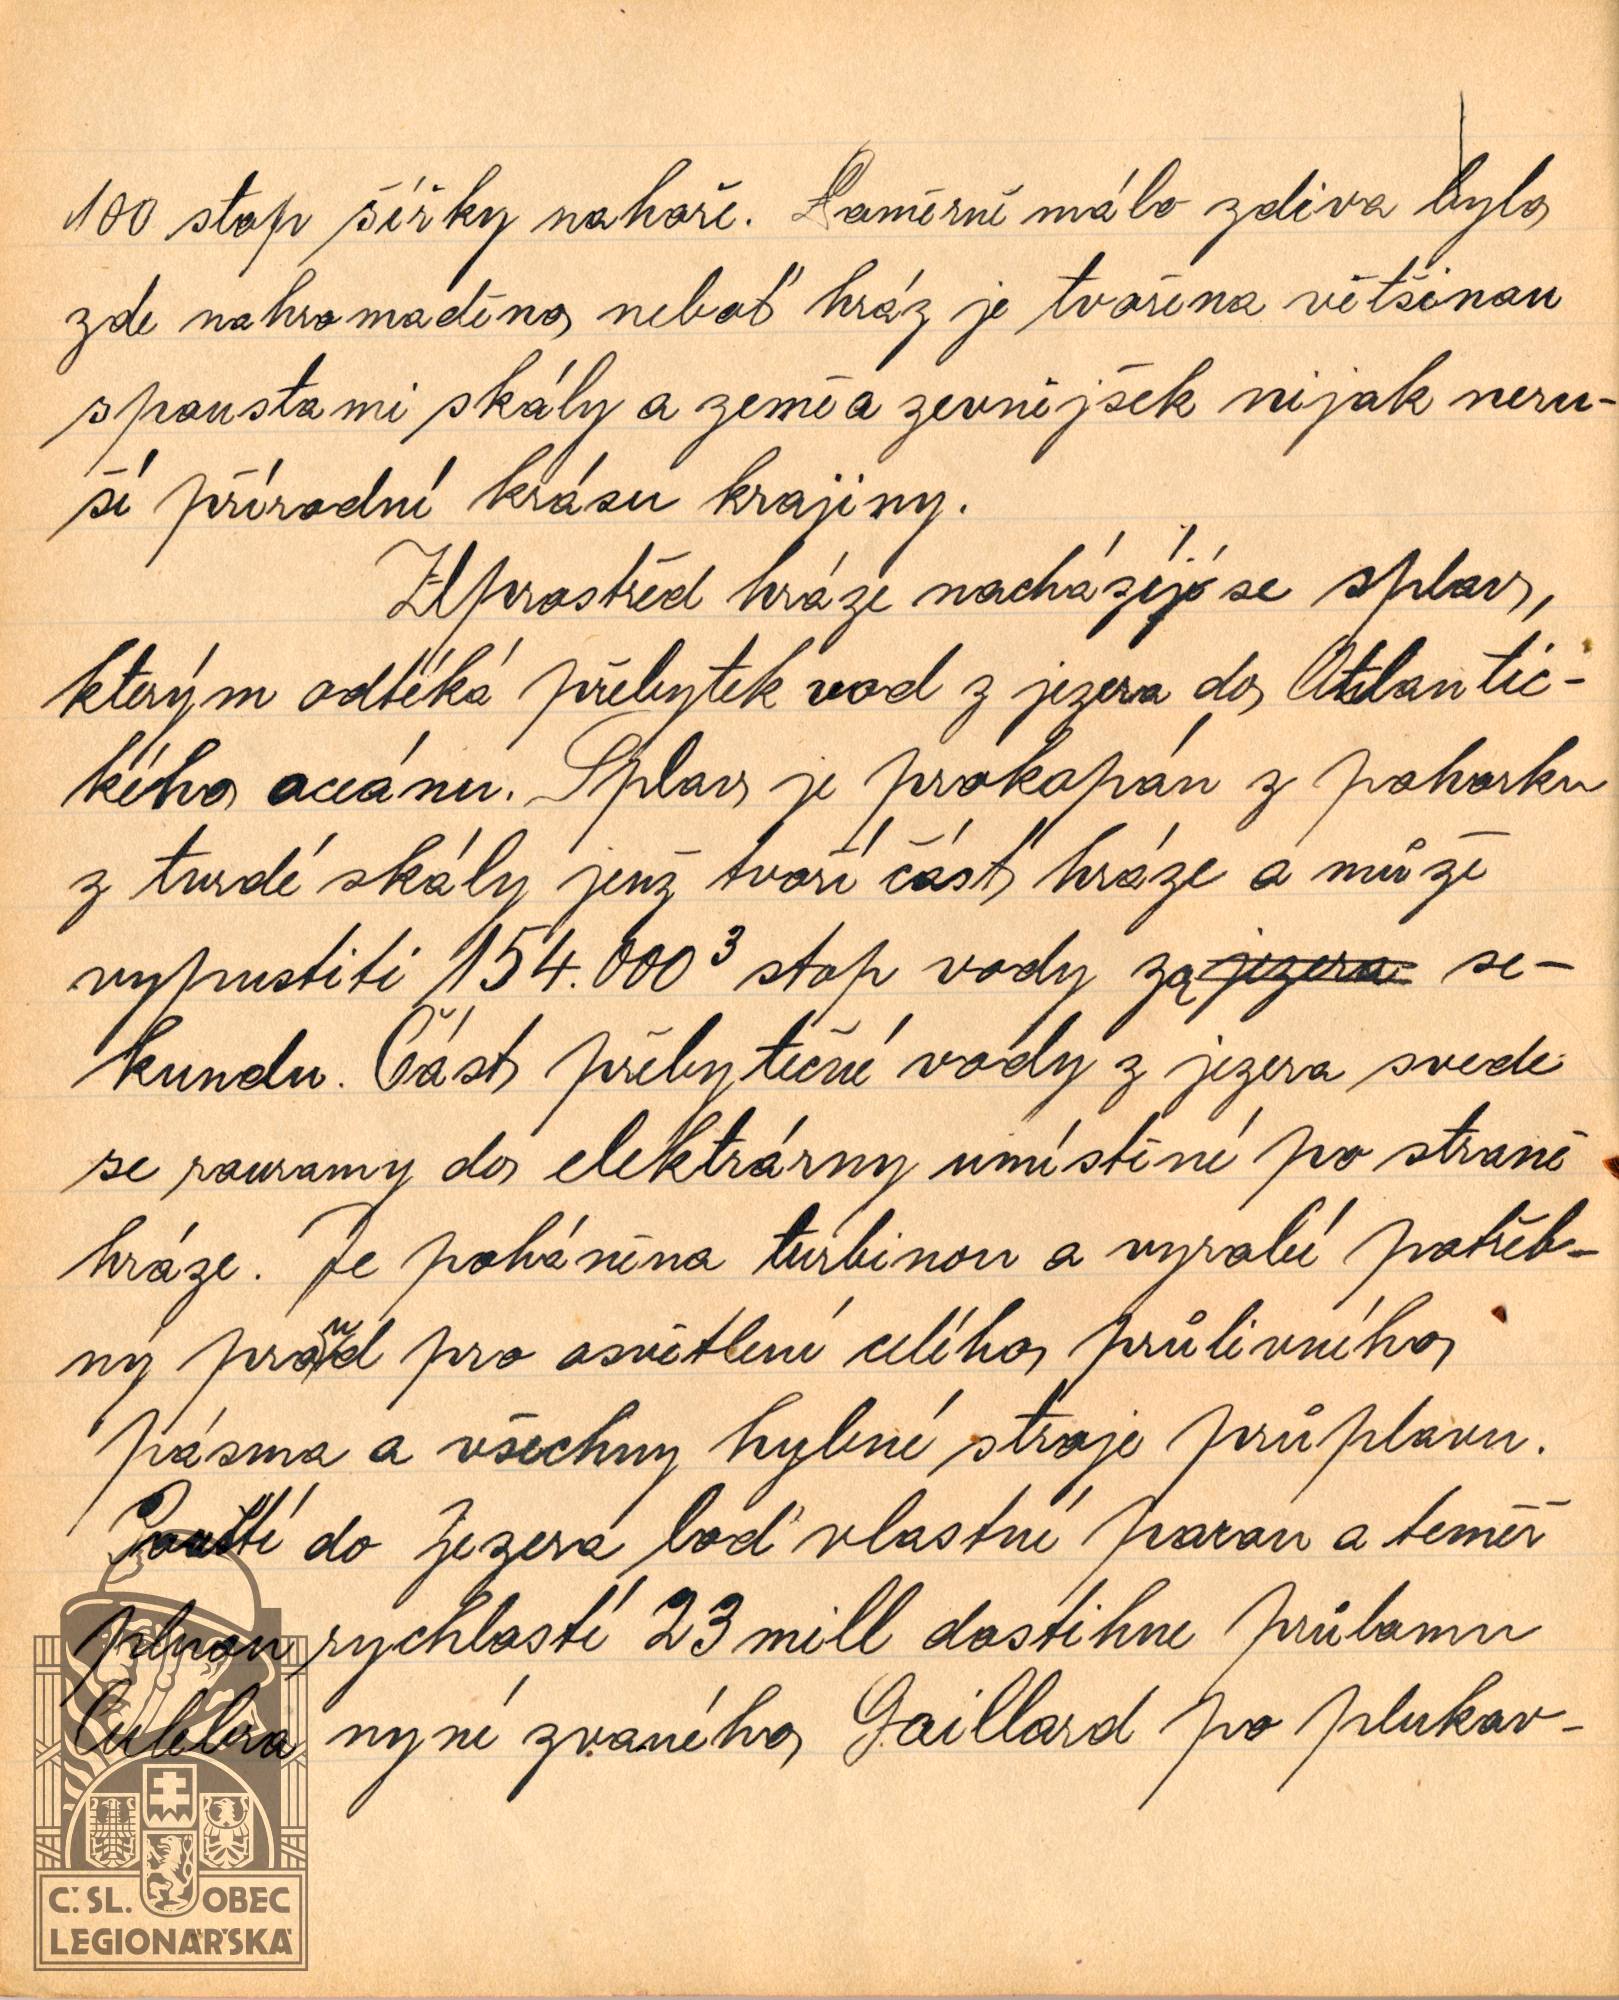 100 stop šířky nahoře. Poměrně málo zdiva bylo
zde nahromaděno neboť hráz je tvořena většinou
spoustami skály a země a zevnějšek nijak neru-
ší přírodní krásu krajiny.
Uprostřed hráze nachází se splav,
kterým odtéká přebytek vod z jezera do Atlantic-
kého oceánu. Splav je prokopán z pahorku
z tvrdé skály jenž tvoří část hráze a může
vypustiti 154.000³ stop vody za jezera se-
kundu. Část přebytečné vody z jezera svede
se rouramy do elektrárny umístěné po straně
hráze. Je poháněna turbinou a vyrábí potřeb-
ný proud pro osvětlení celého průlivného
pásma a všechny hybné stroje průplavu.
Pouští do jezera loď vlastní parou a téměř
plnou rychlostí 23 mill dostihne průlomu
Culebra nyní zvaného Gaillard po plukov-
Č. SL. OBEC
LEGIONÁŘSKÁ